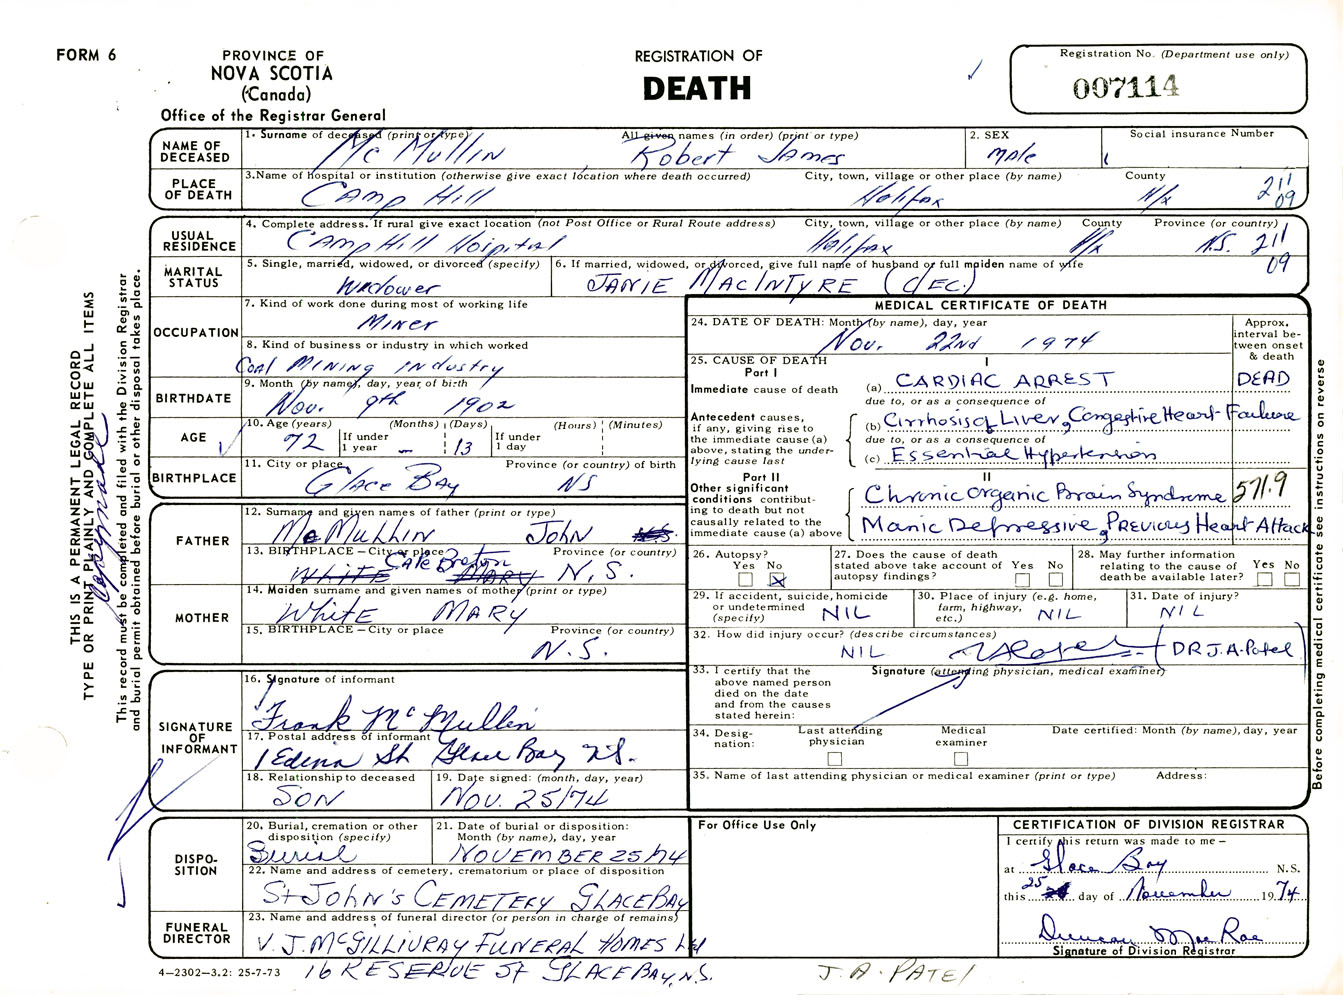 FORM 6
PROVINCE OF
NOVA SCOTIA
(Canada)
Office of the Registrar General
REGISTRATION OF
DEATH
Registration No. (Department use only)
007114
NAME OF DECEASED
1. Surname of deceased (print or type) All given names (in order) (print or type)
Mc Mullin Robert James
2. SEX
Male
Social insurance Number
PLACE OF DEATH
3. Name of hospital or institution (otherwise give exact location where death occurred) City, town, village or other place (by name) County
Camp Hill Halifax Hfx 211 09
USUAL RESIDENCE
4. Complete address. If rural give exact location (not Post Office or Rural Route address) City, town, village or other place (by name) County Province (or country)
Camp Hill Hospital Halifax Hfx N.S. 211 09
MARITAL STATUS
5. Single, married, widowed, or divorced (specify)
Widower
6. If married, widowed, or divorced, give full name of husband or full maiden name of wife
JANIE MacINTYRE (DEC.)
OCCUPATION
7. Kind of work done during most of working life
Miner
8. Kind of business or industry in which worked
Coal Mining Industry
BIRTHDATE
9. Month (by name), day, year of birth
Nov. 9th 1902
AGE
10. Age (years) (Months) (Days) (Hours) (Minutes)
72 If under 1 year — 13 If under 1 day
BIRTHPLACE
11. City or place Province (or country) of birth
Glace Bay NS
FATHER
12. Surname and given names of father (print or type)
McMullin John N.S.
13. BIRTHPLACE – City or place Province (or country)
Cape Breton
White Mary N.S.
MOTHER
14. Maiden surname and given names of mother (print or type)
White MARY
15. BIRTHPLACE – City or place Province (or country)
N.S.
SIGNATURE OF INFORMANT
16. Signature of informant
Frank McMullin
17. Postal address of informant
1 Edina St Glace Bay N.S.
18. Relationship to deceased
SON
19. Date signed: (month, day, year)
Nov. 25/74
DISPO-
SITION
20. Burial, cremation or other disposition (specify)
Burial
21. Date of burial or disposition: Month (by name), day, year
NOVEMBER 25/74
22. Name and address of cemetery, crematorium or place of disposition
St John's Cemetery GLACE BAY
FUNERAL DIRECTOR
23. Name and address of funeral director (or person in charge of remains)
V.J. McGILLIVRAY FUNERAL HOMES Ltd
16 RESERVE ST GLACE BAY, N.S.
4–2302–3.2: 25-7-73
MEDICAL CERTIFICATE OF DEATH
24. DATE OF DEATH: Month (by name), day, year
Nov. 22nd 1974
Approx. interval between onset & death
25. CAUSE OF DEATH I
Part I
Immediate cause of death (a) CARDIAC ARREST DEAD
due to, or as a consequence of
Antecedent causes, if any, giving rise to the immediate cause (a) above, stating the underlying cause last
(b) Cirrhosis of Liver, Congestive Heart Failure
due to, or as a consequence of
(c) Essential Hypertension
Part II II
Other significant conditions contributing to death but not causally related to the immediate cause (a) above
Chronic Organic Brain Syndrome 571.9
Manic Depressive, Previous Heart Attack
26. Autopsy?
Yes No
27. Does the cause of death stated above take account of autopsy findings?
Yes No
28. May further information relating to the cause of death be available later?
Yes No
29. If accident, suicide, homicide or undetermined (specify) NIL
30. Place of injury (e.g. home, farm, highway, etc.) NIL
31. Date of injury?
NIL
32. How did injury occur? (describe circumstances)
NIL (DR J.A. Patel)
33. I certify that the above named person died on the date and from the causes stated herein:
Signature (attending physician, medical examiner)
34. Designation: Last attending physician Medical examiner Date certified: Month (by name), day, year
35. Name of last attending physician or medical examiner (print or type) Address:
For Office Use Only
CERTIFICATION OF DIVISION REGISTRAR
I certify this return was made to me –
at Glace Bay N.S.
this 25 day of November 1974
Duncan MacRae
Signature of Division Registrar
J.A. PATEL
THIS IS A PERMANENT LEGAL RECORD
TYPE OR PRINT PLAINLY AND COMPLETE ALL ITEMS
This record must be completed and filed with the Division Registrar
and burial permit obtained before burial or other disposal takes place.
Before completing medical certificate see instructions on reverse